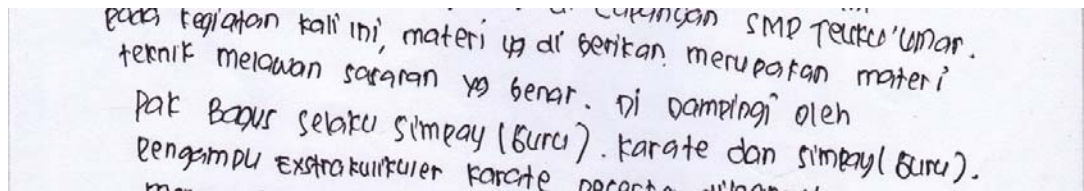 di Lapangan SMP Teuku Umar.
pada kegiatan kali ini, materi yg di berikan merupakan materi
teknik melawan sasaran yg benar. Di Dampingi oleh
Pak Bagus selaku simpay (Guru). karate dan simpay (Guru).
Pengampu Exstrakulikuler karate